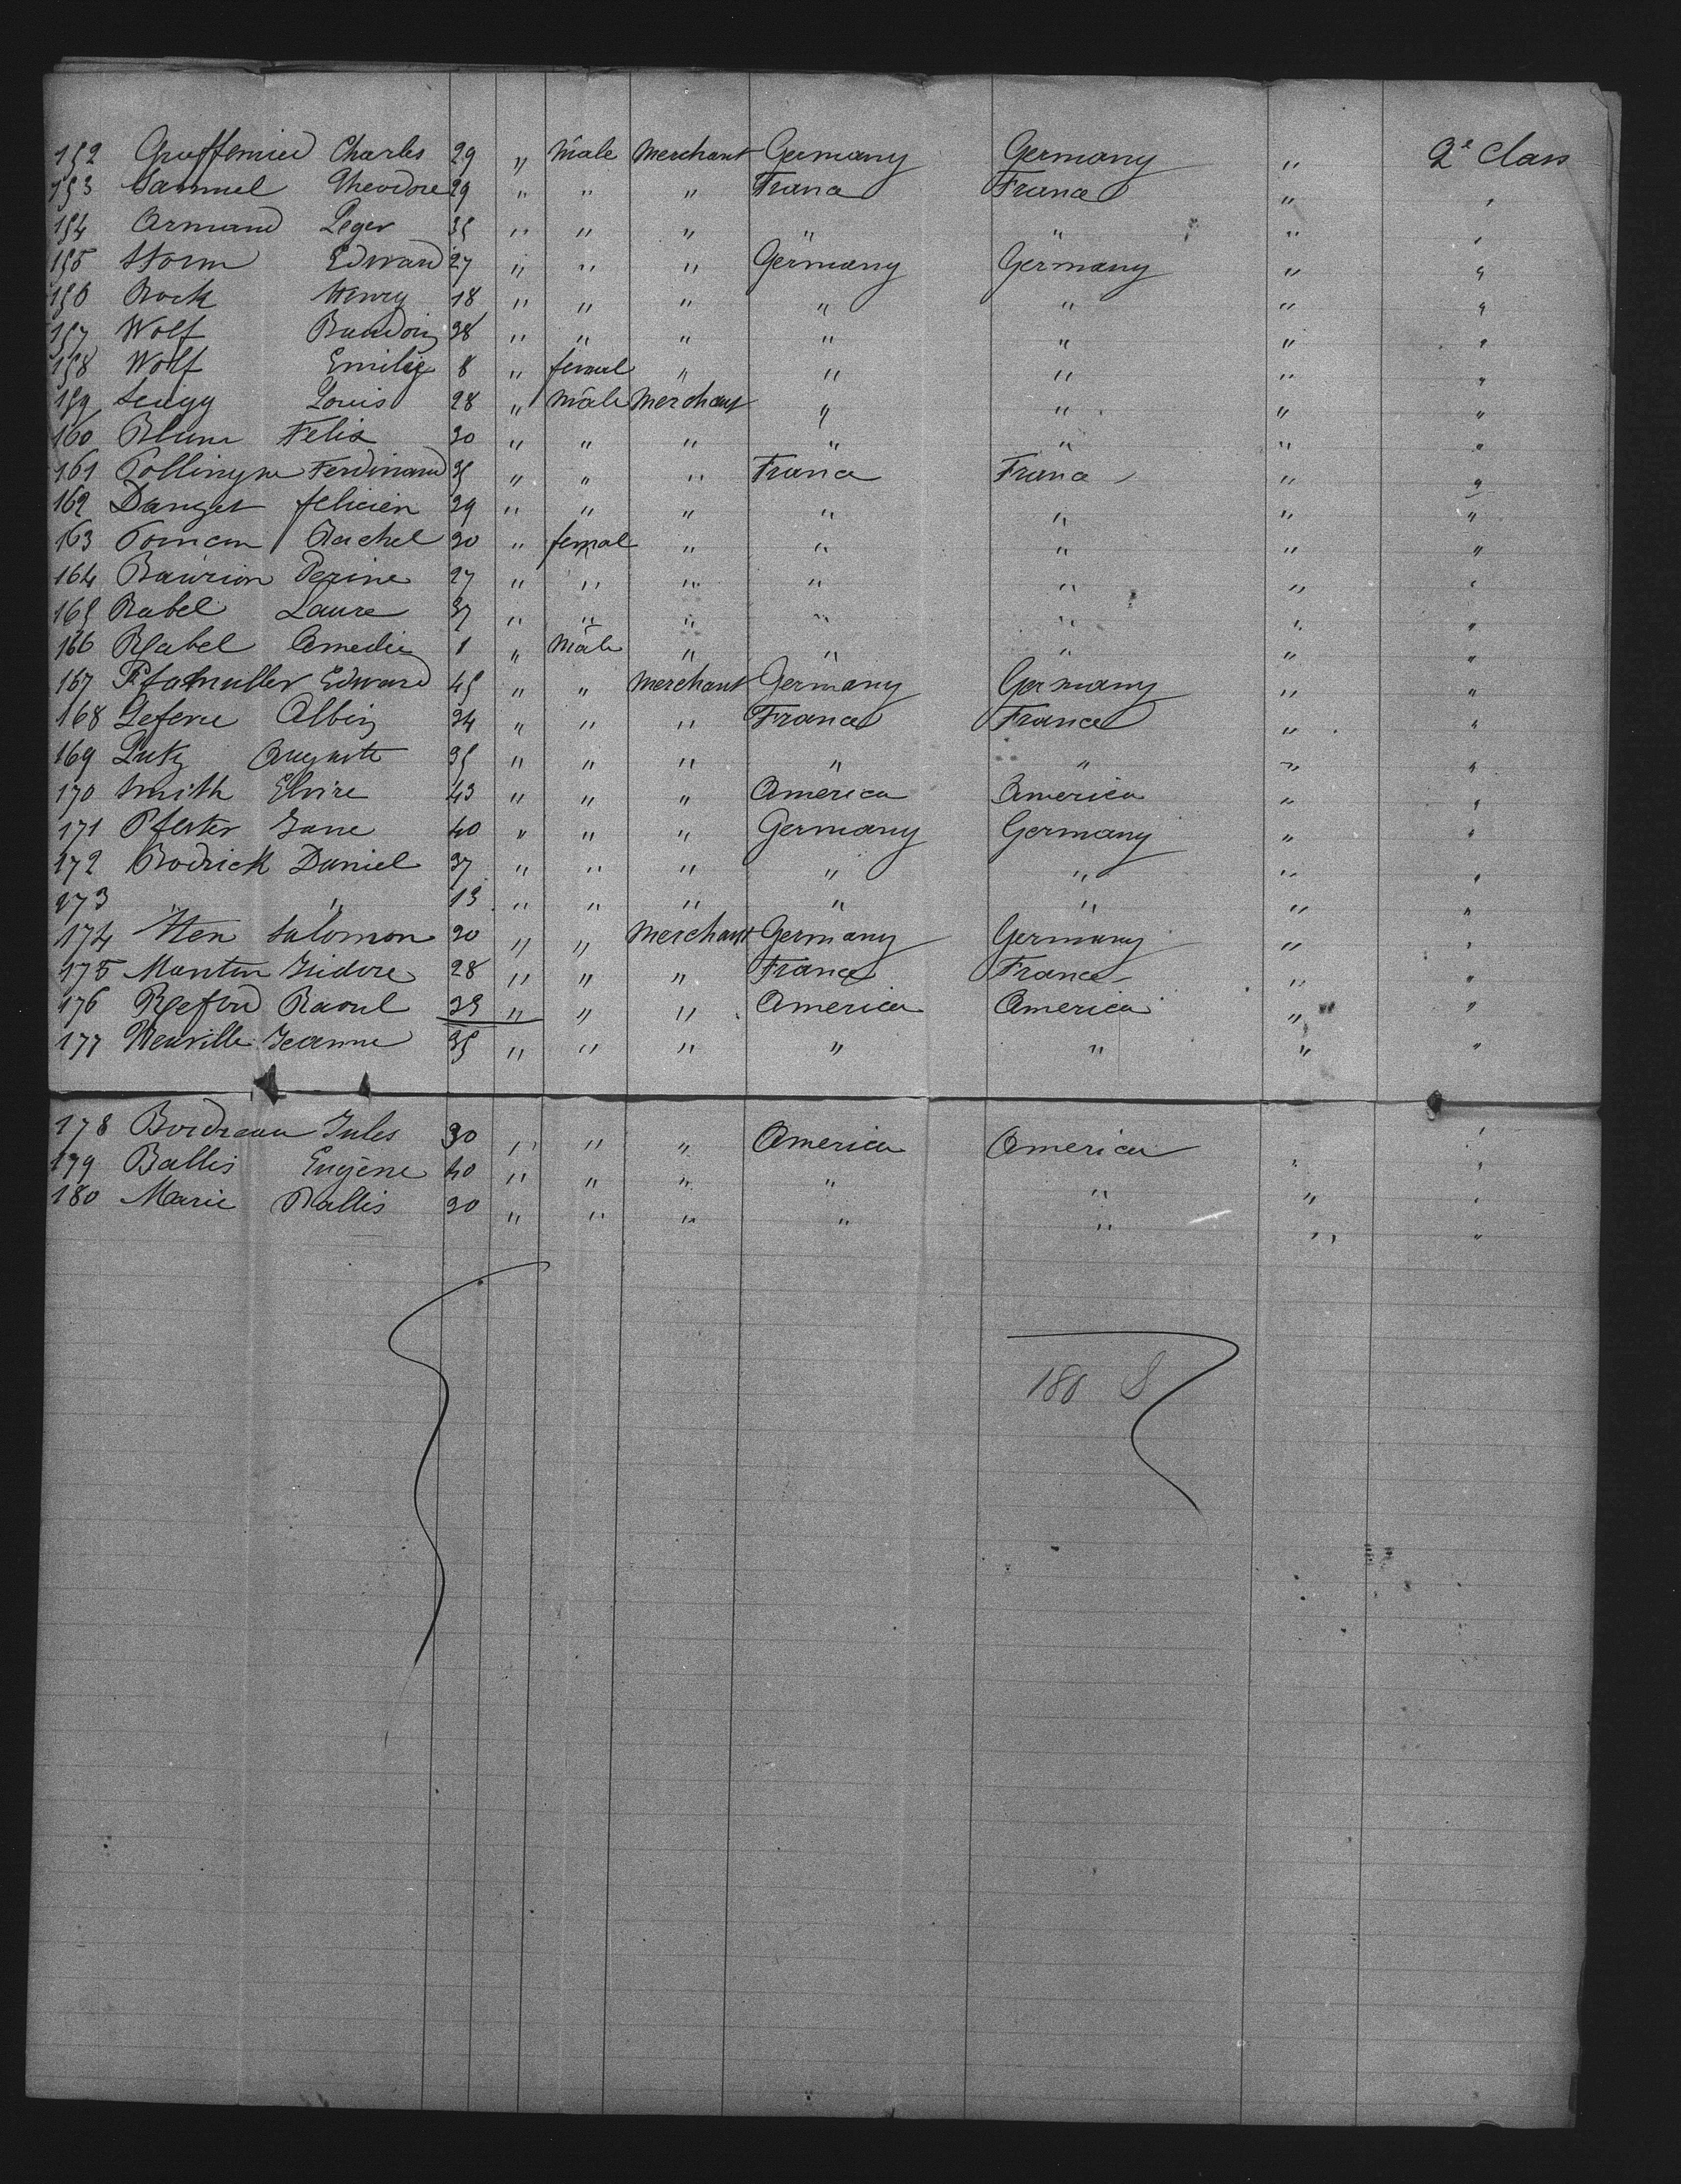 152 Graffenried Charles 29 " Male Merchant Germany Germany " 2e Class
153 Samuel Theodore 29 " " " France France " "
154 Armand Leger 35 " " " " " " "
155 Storm Edward 27 " " " Germany Germany " "
156 Bock Henry 18 " " " " " " "
157 Wolf Baudoin 38 " " " " " " "
158 Wolf Emilie 8 " femal " " " " "
159 Louis 28 " Male Merchant " " " "
160 Blum Felix 30 " " " " " " "
161 Ferdinand 35 " " " France France " "
162 Danget felicien 29 " " " " " " "
163 Rachel 30 " femal " " " " "
164 Baurion Perine 27 " " " " " " "
165 Rabel Laure 37 " " " " " " "
166 Rabel Amedie 1 " Male " " " " "
167 Pfafmuller Edward 45 " " Merchant Germany Germany " "
168 Lefevre Albin 34 " " " France France " "
169 Lutz Auguste 35 " " " " " " "
170 Smith Elvire 43 " " " America America " "
171 Pfester Jane 40 " " " Germany Germany " "
172 Rodrick Daniel 37 " " " " " " "
173 " " 13 " " " " " " "
174 Salomon 30 " " Merchant Germany Germany " "
175 Isidore 28 " " " France France " "
176 Raoul 35 " " " America America " "
177 Neuville Jeanne 35 " " " " " " "
178 Bordeaux Jules 30 " " " America America " "
179 Rallis Eugène 40 " " " " " " "
180 Marie Rallis 30 " " " " " " "
180